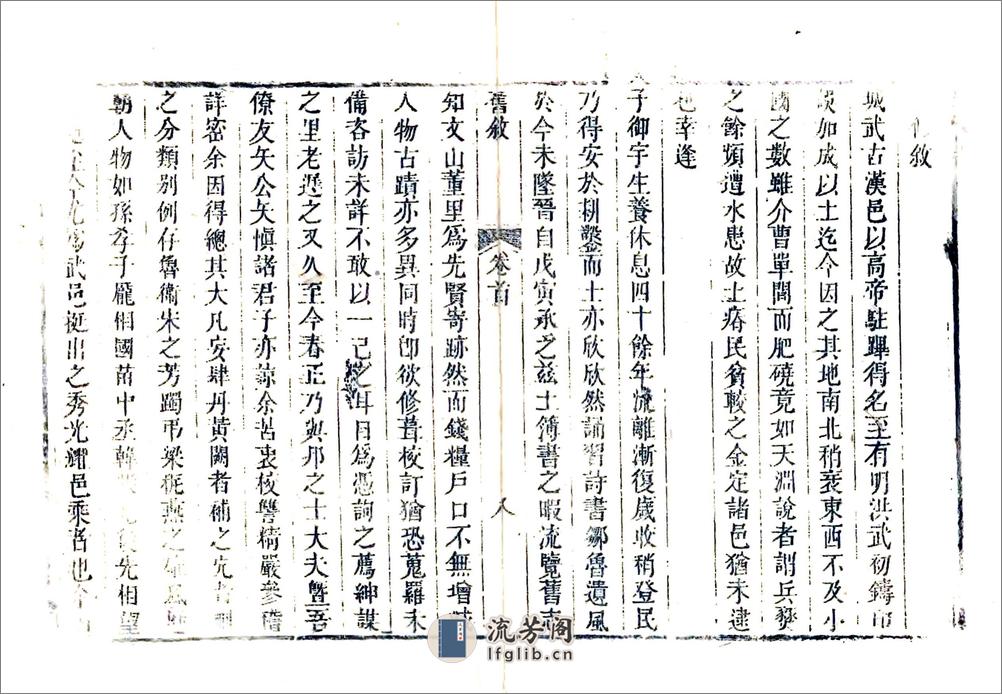 敘
城武古漢邑以高帝駐蹕得名至有明洪武初鑄印
加成以土迄今因之其地南北稍袤東西不及小
國之數雖介曹單間而肥磽竟如天淵說者謂兵燹
之餘頻遭水患故土瘠民貧較之金定諸邑猶未逮
也幸逢
子御宇生養休息四十餘年流離漸復歲收稍登民
乃得安於耕鑿而士亦欣欣然誦習詩書鄒魯遺風
於今未墜晉自戊寅承乏茲土簿書之暇流覽舊志
舊敘
卷首
八
知文山董里爲先賢寄跡然而錢糧戶口不無增
人物古蹟亦多異同時卽欲修葺校訂猶恐蒐羅未
備咨訪未詳不敢以一己之耳目爲憑詢之薦紳謀
之里老遲之又久至今春正乃與邦之士大夫暨吾
僚友矢公矢愼諸君子亦諒余苦衷校讐精嚴參稽
詳密余因得總其大凡安肆丹黃闕者補之
之分類別例仔魯衞宋之芳躅弔梁
朝人物如孫孝子龐相國苗中丞韓 先相望
爲武邑挺出之秀光耀邑乘者也
流芳阁
lfglib.cn